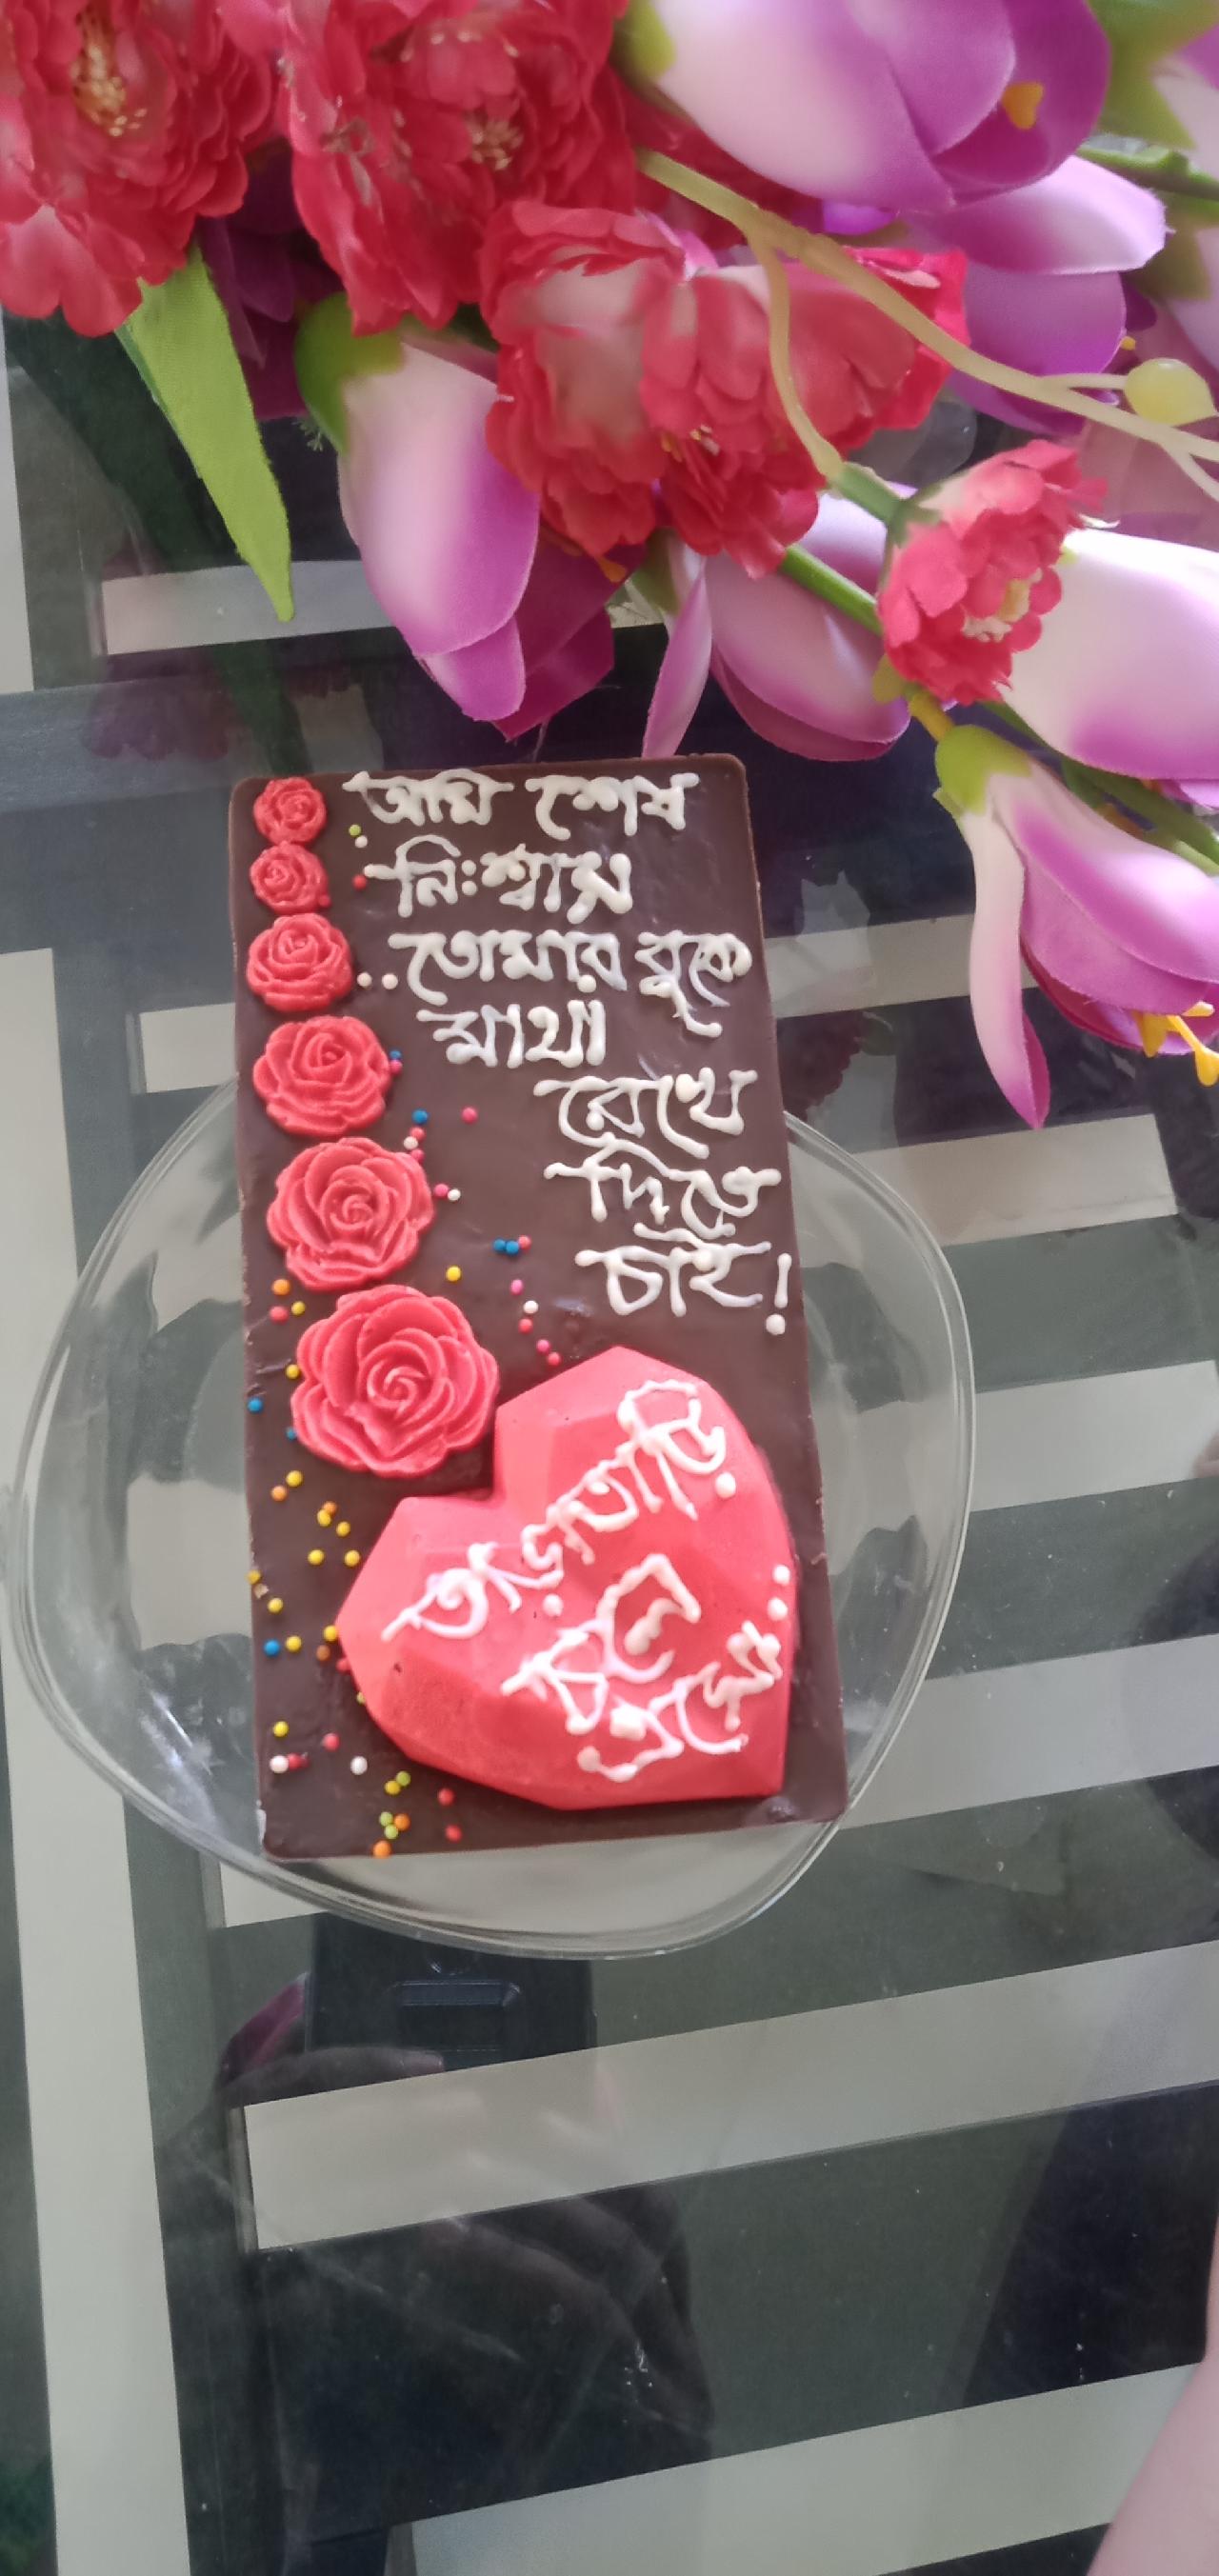 আমি শেষ
নিঃশ্বাস
তোমার বুকে
মাথা
রেখে
দিতে
চাই!
তাড়াতাড়ি